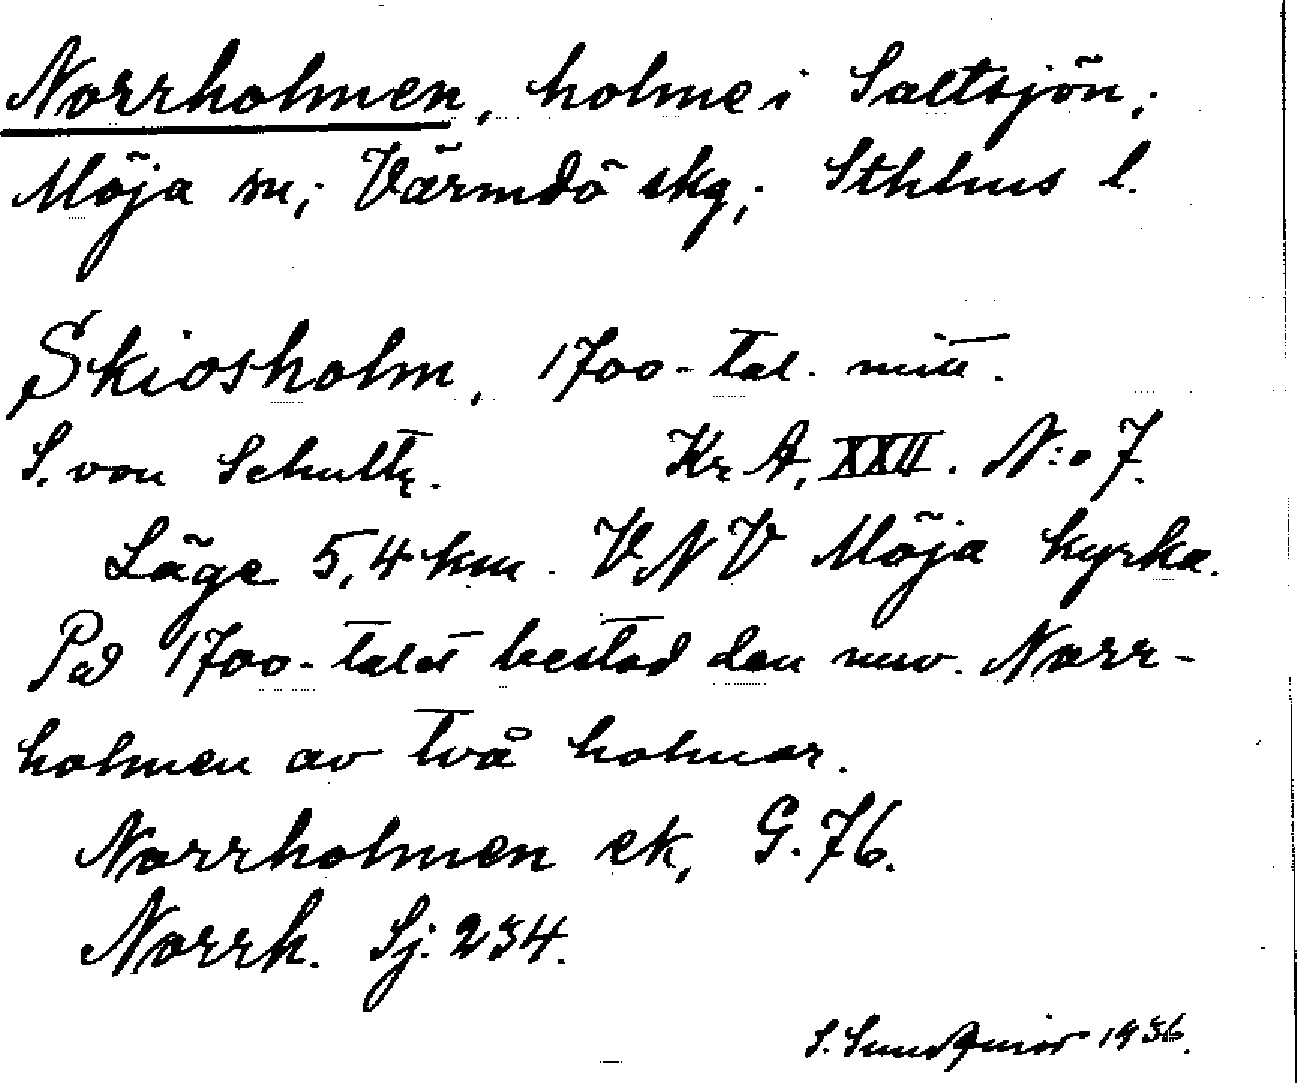 Norrholmen, holme i Saltsjön,
Möja sn, Värmdö skg, Sthlms l.
Skiosholm, 1700-tal. mitt.
S. von Schultz. Kr A, XXII. N:o 7.
Läge 5,4 km. VNV Möja kyrka.
På 1700-talet bestod den nuv. Norr-
holmen av två holmar.
Norrholmen ek, G. 76.
Norrh. Sj. 234.
S. 1936.